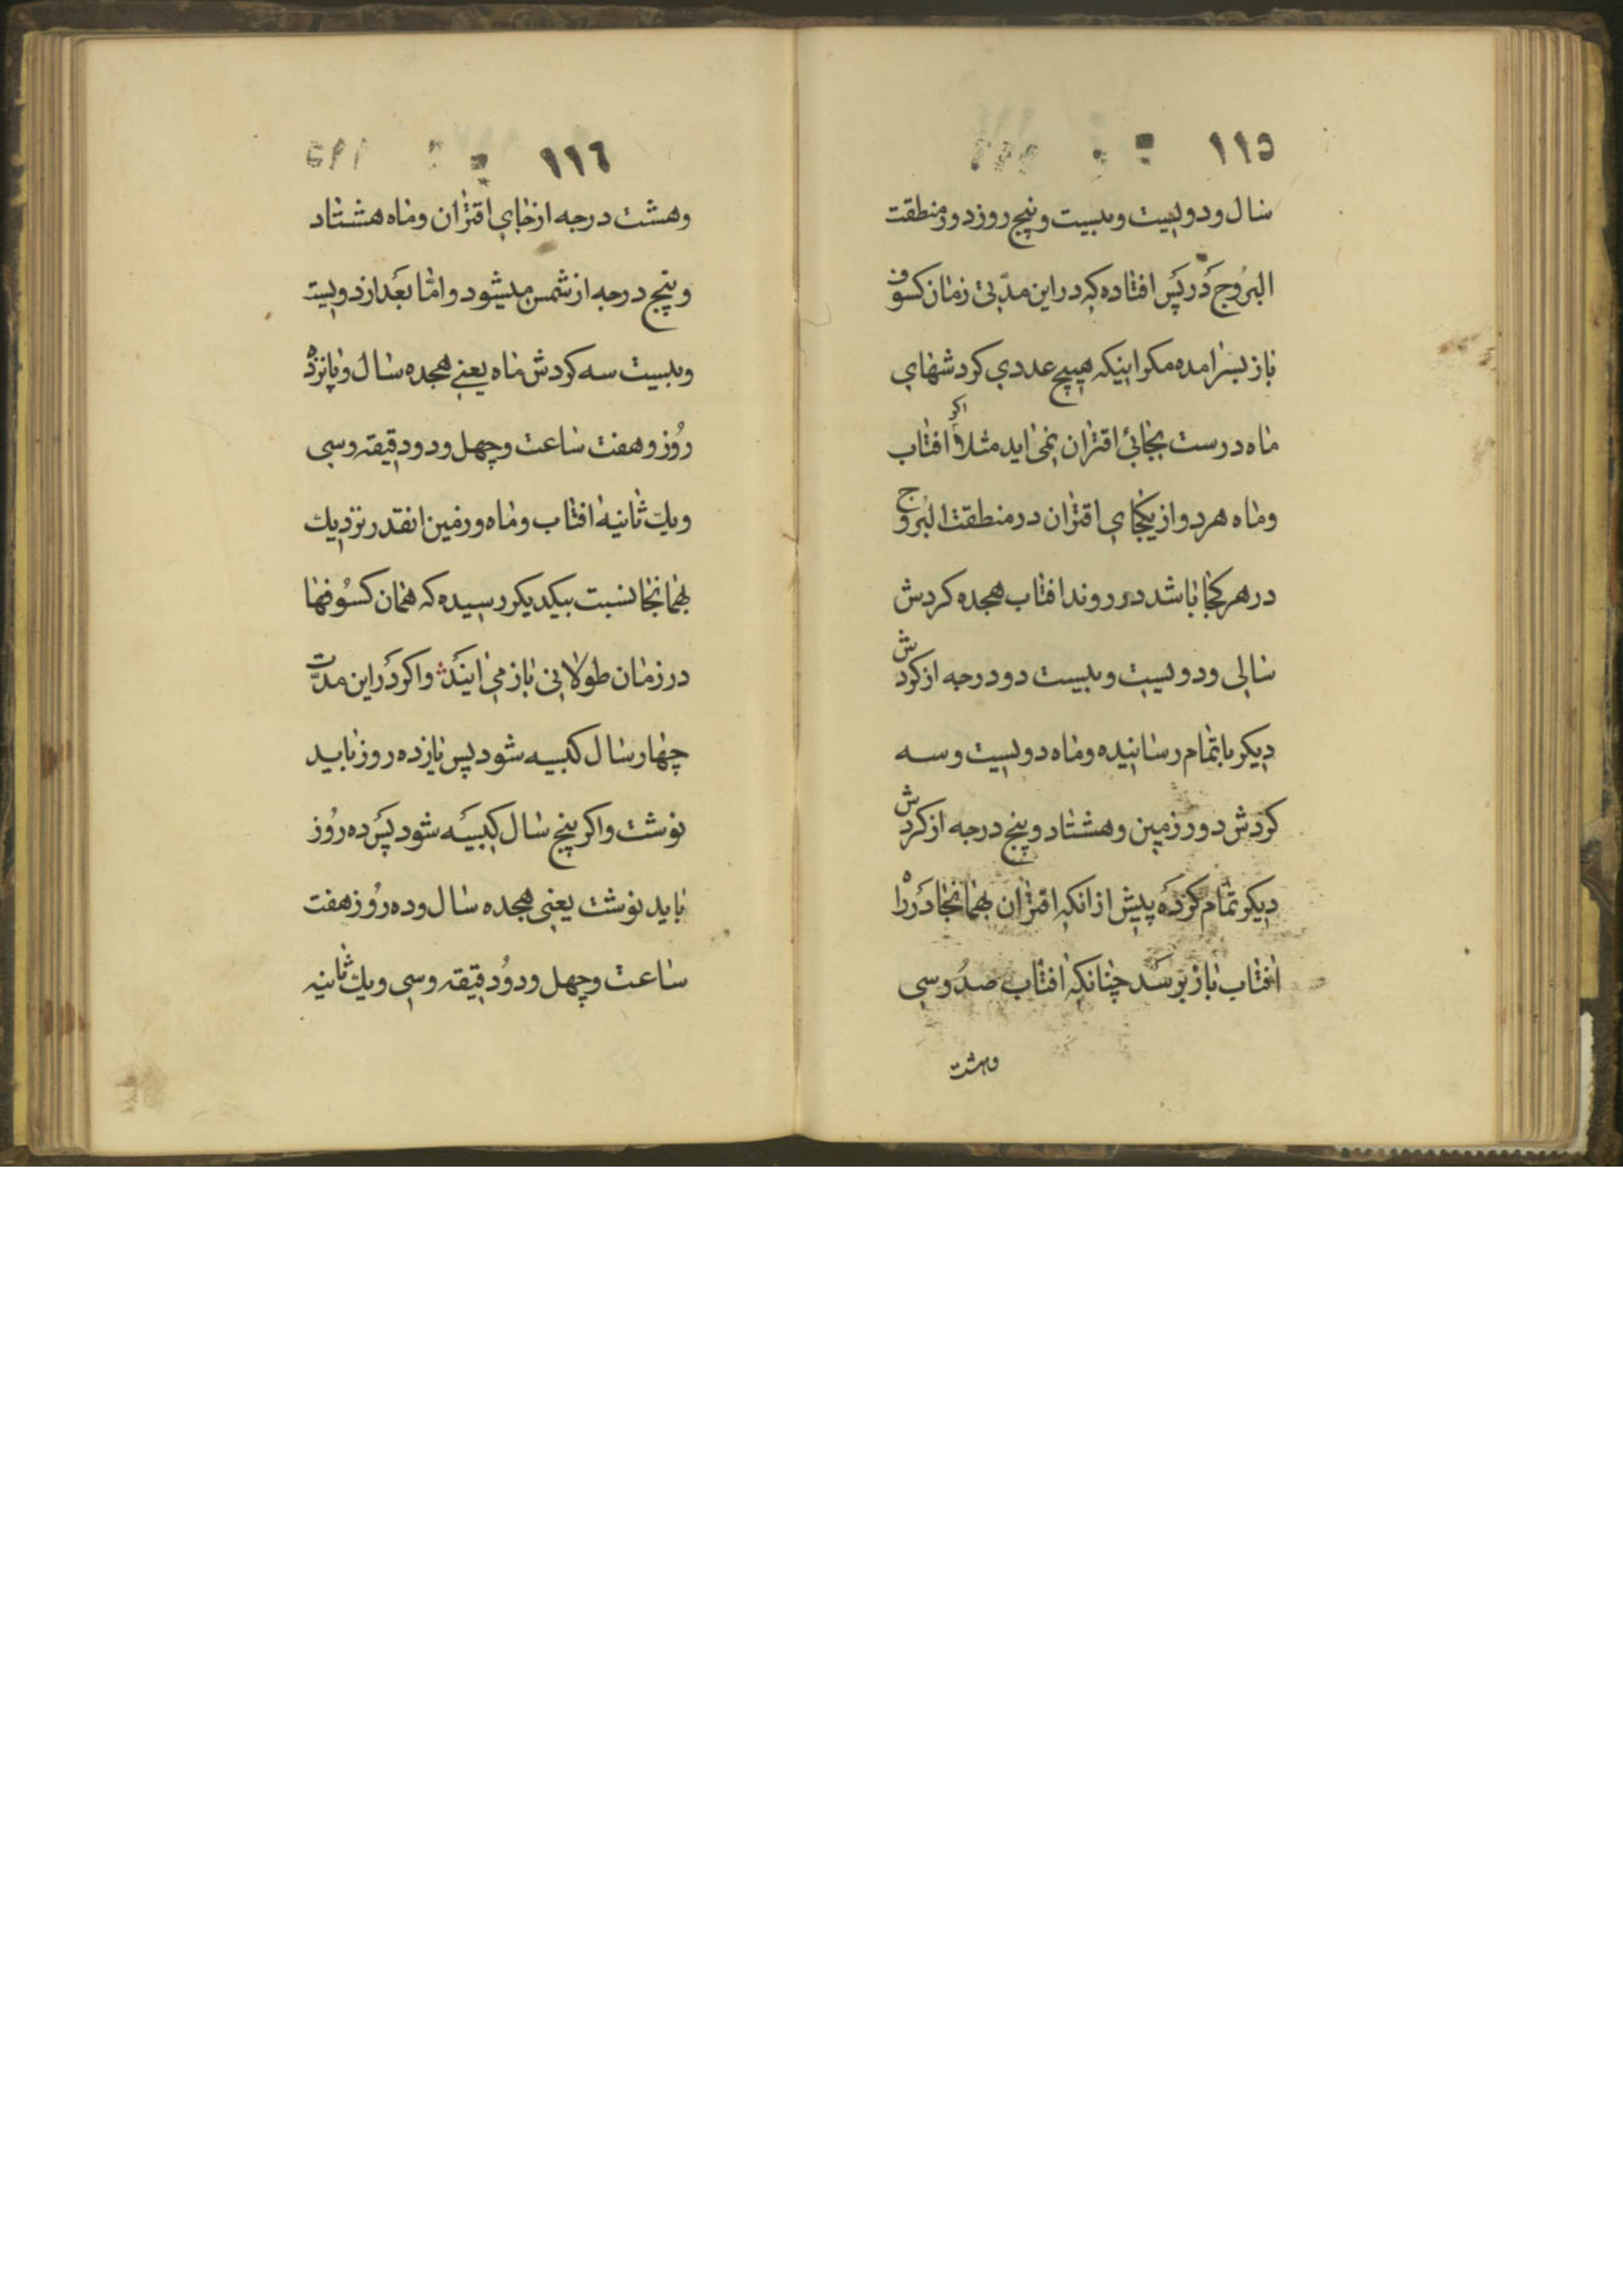 ١١٥
سال و دویست و بیست و پنج روز دور منطقت
البرُوج دَر پَس افتاده که در این مدّتی زمان کسوف
باز بسر امده مکر اینکه هیچ عددی کردشهای
ماه درست بجائی اقتران نمی اید مثلاً اکر افتاب
و ماه هر دو از یکجای اقتران در منطقت البرُوج
در هر کجا باشد در روند افتاب هجده کردش
سالی و دویست و بیست دو درجه از کردش
دیکر باتمام رسانیده و ماه دویست و سه
کردش دور زمین و هشتاد و پنج درجه از کردش
دیکر تمام کَردَه پیش از انکه اقتران بهمانجا دَر راه
افتاب باز برَسَد چنانکه افتاب صدُ و سی
وهشت
١١٦
و هشت درجه از جای اقتران و ماه هشتاد
و پنج درجه از شمس میشود و امّا بعَد از دویست
و بیست سه کردش ماه یعنی هجده سال و پانزده
رُوز و هفت ساعت و چهل و دو دقیقه و سی
و یك ثانیه افتاب و ماه و زمین انقدر نزدیك
بهمانجا نسبت بیکدیکر رسیده که همان کسُوفها
در زمان طولانی باز می ایندَ واکر دَر این مدّت
چهار سال کبیسه شود پس یازده روز باید
نوشت واکر پنج سال کبیسَه شود پَس ده رُوز
باید نوشت یعنی هجده سال و ده رُوز هفت
ساعت و چهل و دوُ دقیقه و سی و یك ثانیه